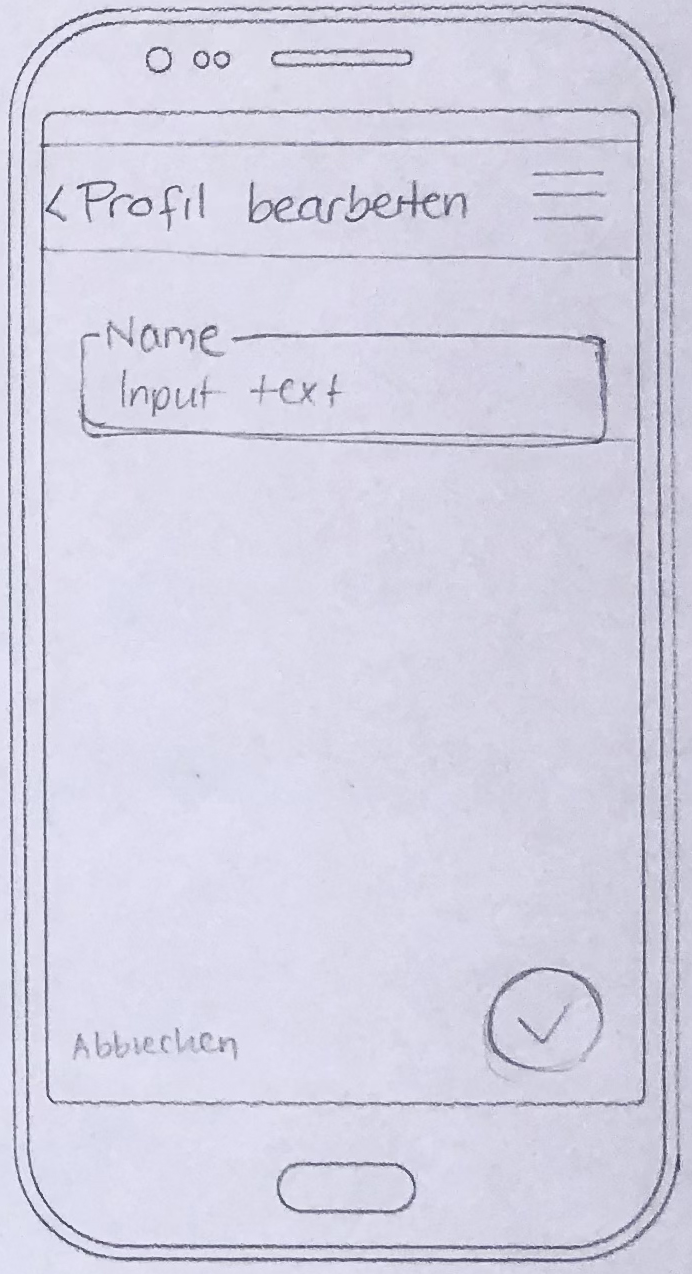 <Profil bearbeiten
Name
Input text
Abbrechen